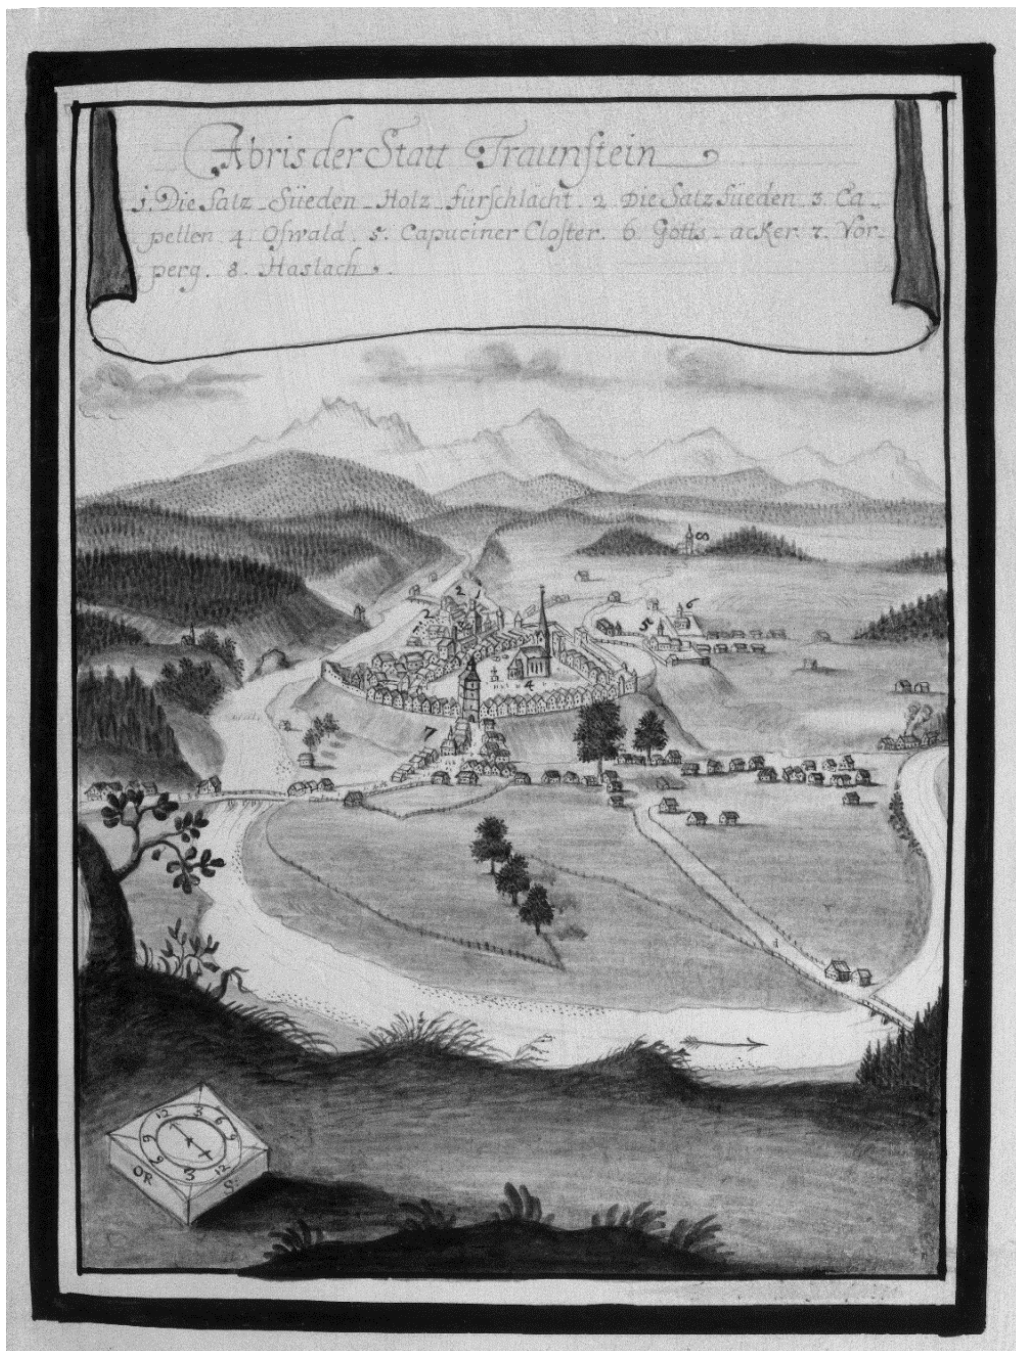 Abris der Statt Traunstein
1. Die Saltz-Süeden-Holtz-fürschlächt. 2 Die Saltz Süeden. 3. Ca-
pellen 4. Oswald. 5. Capuciner Closter. 6 Gotts-acker 7. Vor-
perg. 8. Haslach.
8
2
2
6
5
4
7
1
12 3 6 9 12 3 6 9
OR
S